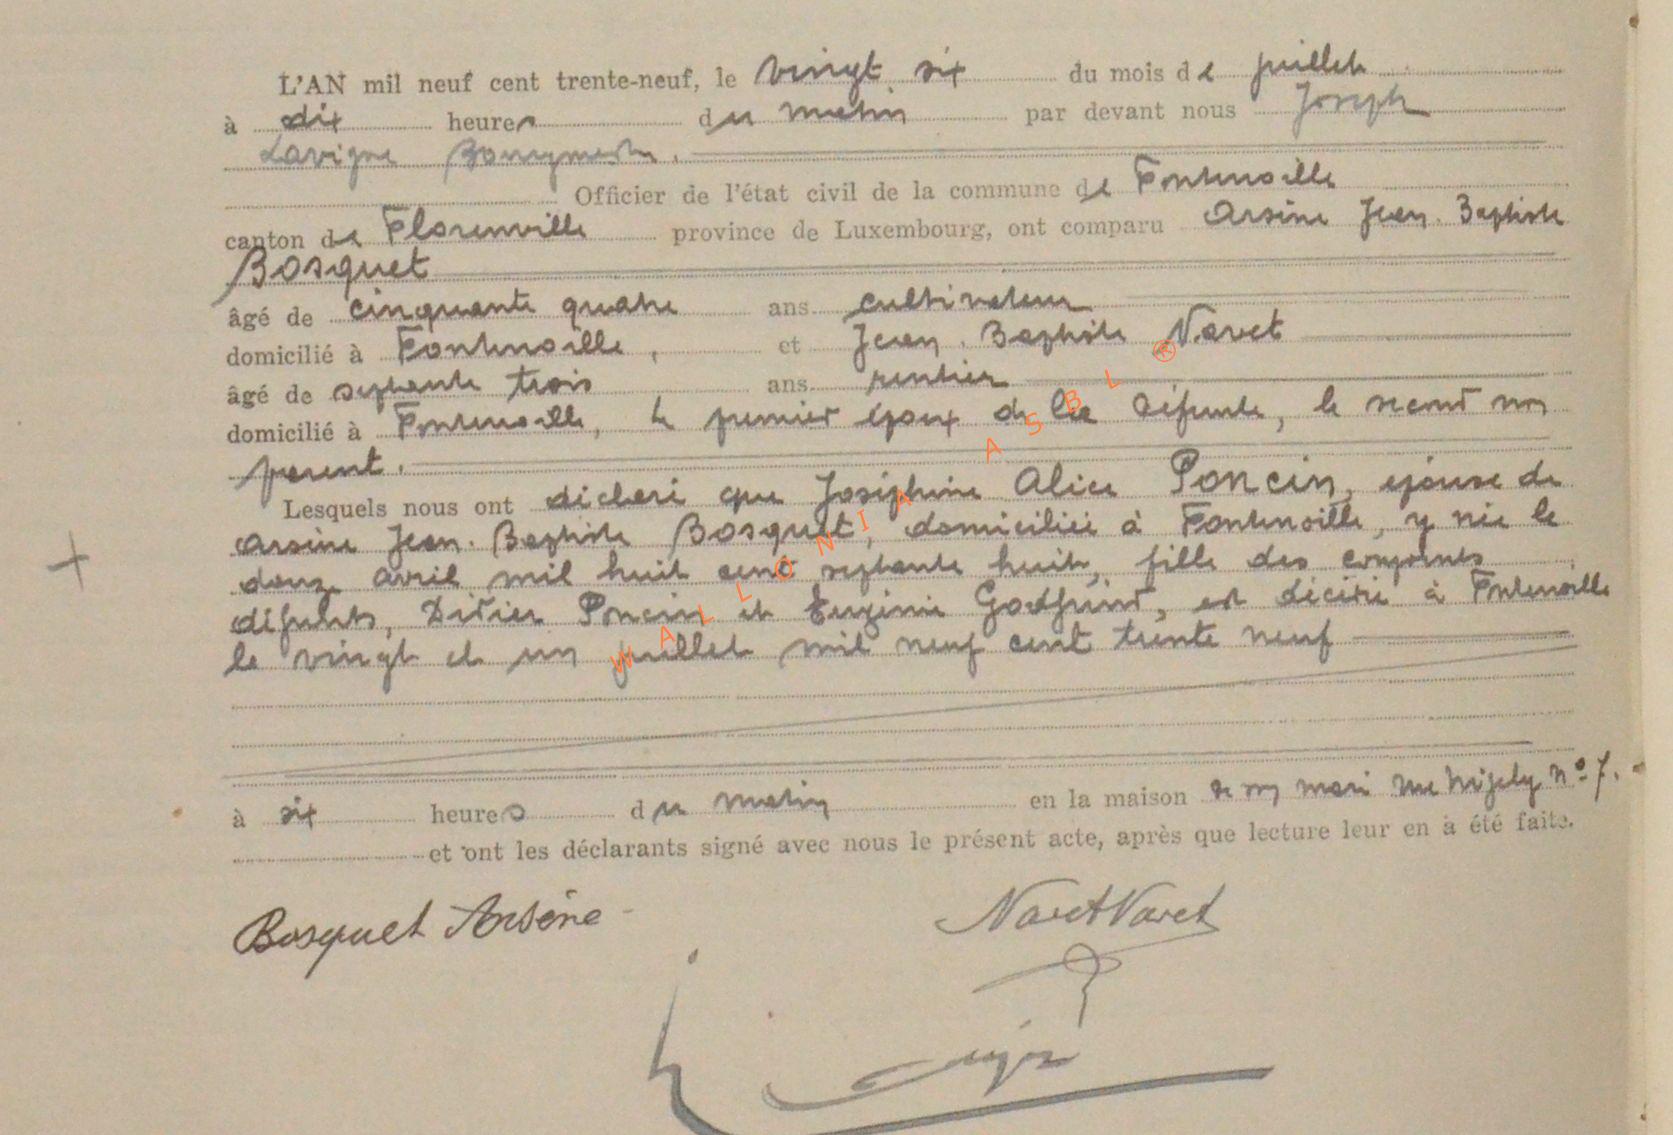 L'AN mil neuf cent trente-neuf, le vingt six du mois de juillet
à dix heures du matin par devant nous Joseph
Lavigne Bourgmestre.
Officier de l'état civil de la commune de Fontenoille
canton de Florenville province de Luxembourg, ont comparu Arsène Jean-Baptiste
Bosquet
âgé de cinquante quatre ans cultivateur
domicilié à Fontenoille, et Jean-Baptiste Navet
âgé de septante trois ans rentier
domicilié à Fontenoille, le premier époux de la défunte, le second non
parent.
Lesquels nous ont déclaré que Joséphine Alice Poncin, épouse de
Arsène Jean-Baptiste Bosquet, domiciliée à Fontenoille, y née le
douze avril mil huit cent septante huit, fille des conjoints
défunts, Didier Poncin et Eugénie Godfrind, est décédée à Fontenoille
le vingt et un juillet mil neuf cent trente neuf
à six heures du matin en la maison de son mari rue n° 7.
et ont les déclarants signé avec nous le présent acte, après que lecture leur en a été faite.
Bosquet Arsène Navet Navet
WALLONIA ASBL ®